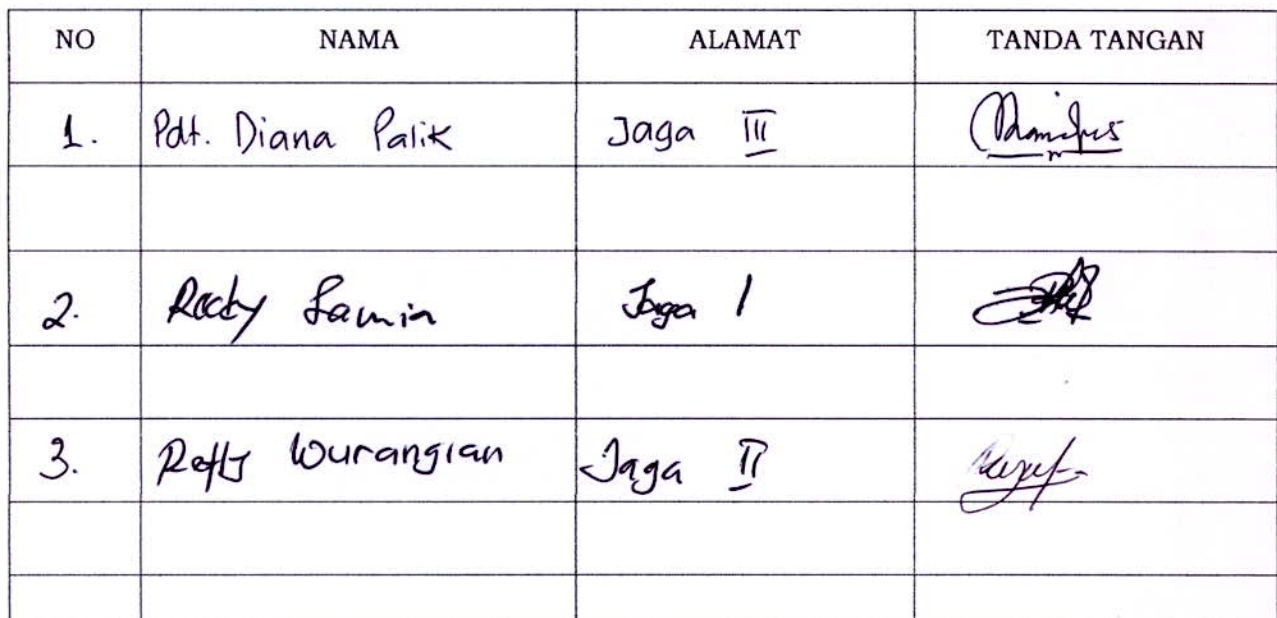 NO NAMA ALAMAT TANDA TANGAN
1. Pdt. Diana Palik Jaga III
2. Jaga I
3. Wurangian Jaga II